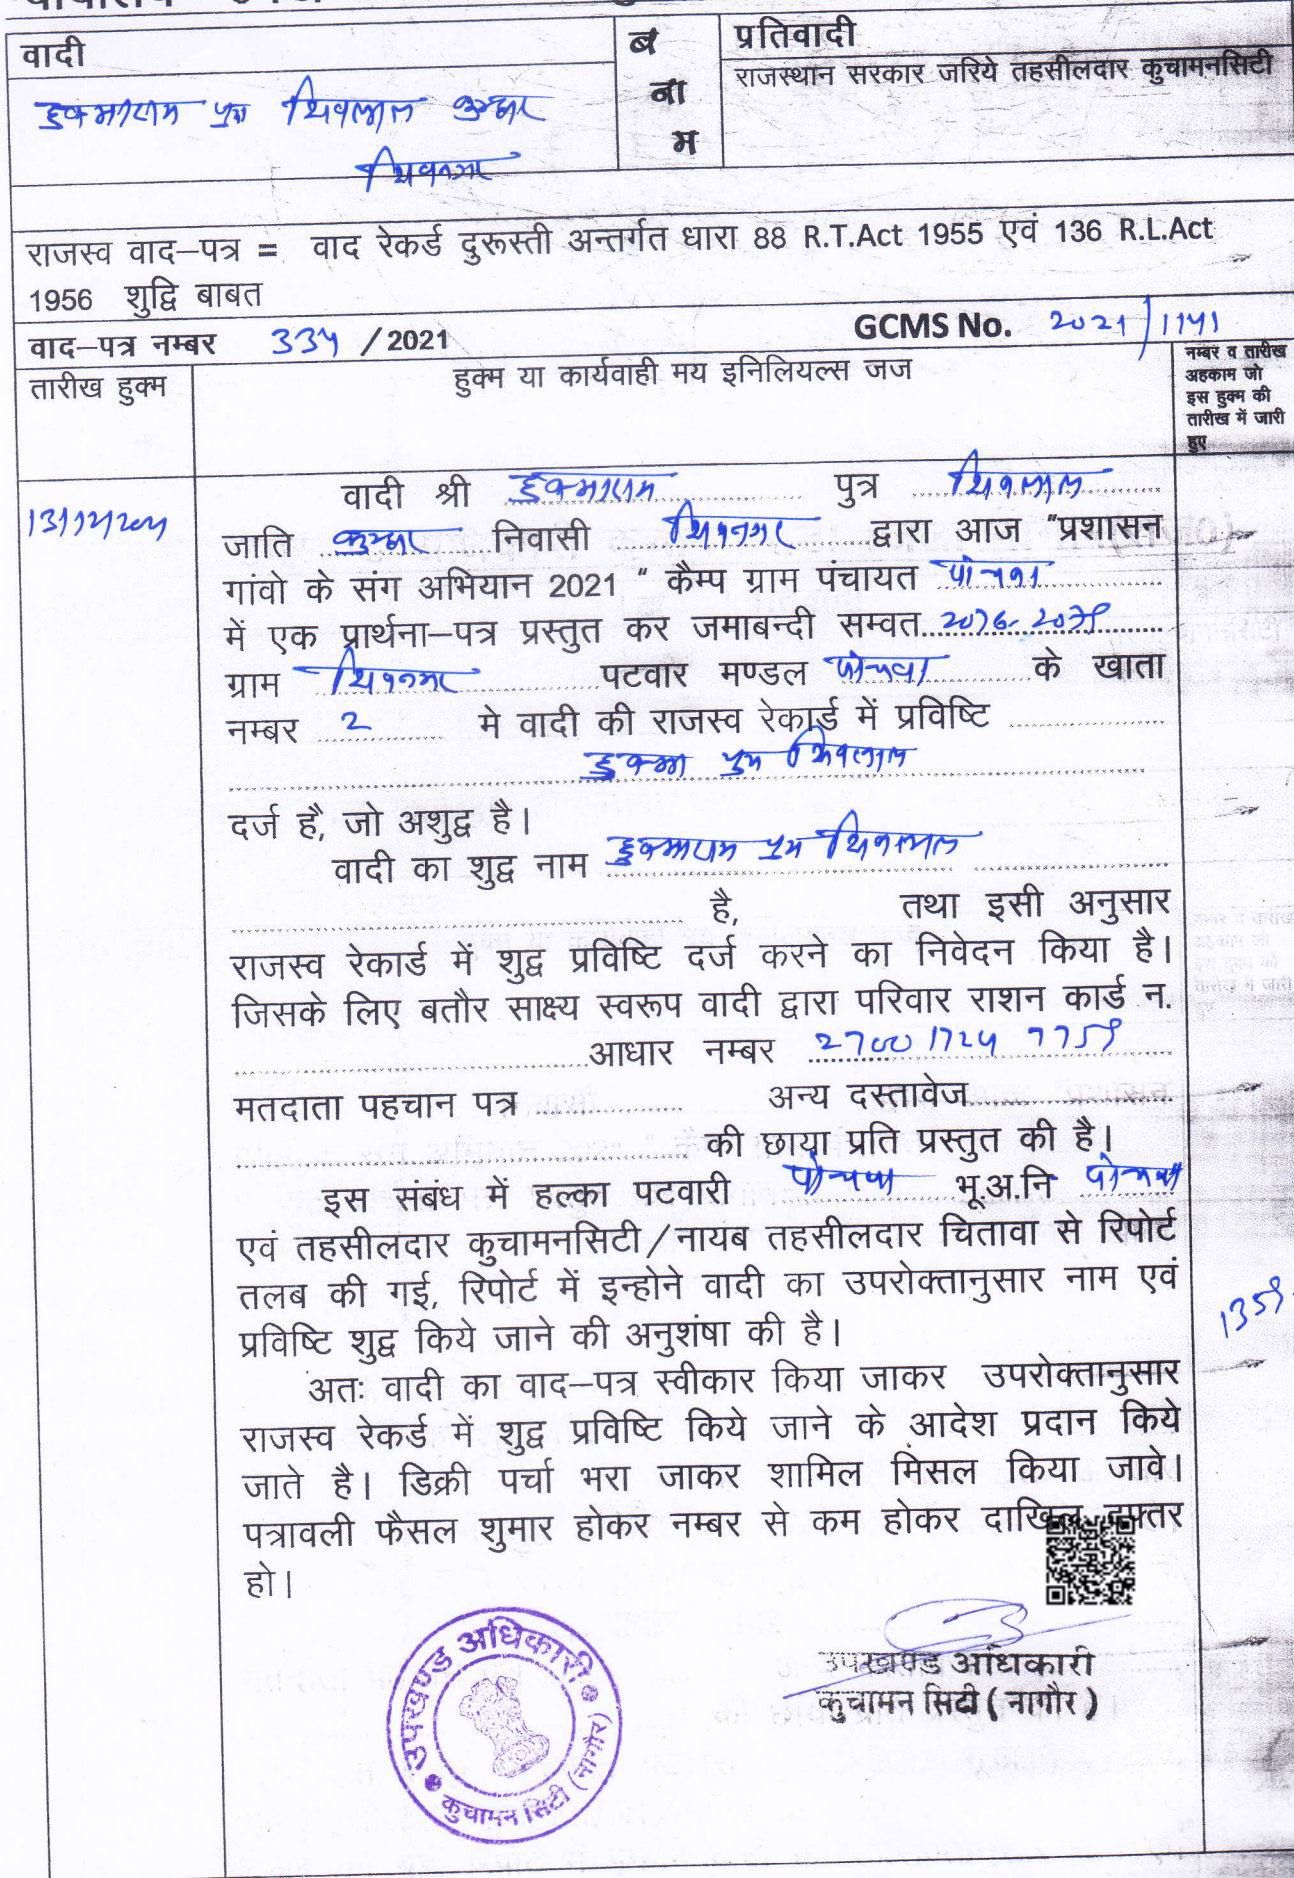 वादी
ब
ना
म
प्रतिवादी
राजस्थान सरकार जरिये तहसीलदार कुचामनसिटी
हुक्माराम पुत्र शिवलाल कुम्हार
शिवनगर
राजस्व वाद–पत्र = वाद रेकर्ड दुरूस्ती अन्तर्गत धारा 88 R.T.Act 1955 एवं 136 R.L.Act
1956 शुद्वि बाबत
वाद–पत्र नम्बर 334 / 2021 GCMS No. 2021/1141
तारीख हुक्म
हुक्म या कार्यवाही मय इनिलियल्स जज
नम्बर व तारीख
अहकाम जो
इस हुक्म की
तारीख में जारी
हुए
वादी श्री हुक्माराम पुत्र शिवलाल
जाति कुम्हार निवासी शिवनगर द्वारा आज "प्रशासन
गांवो के संग अभियान 2021 " कैम्प ग्राम पंचायत पांचवा
में एक प्रार्थना–पत्र प्रस्तुत कर जमाबन्दी सम्वत 2076-2079
ग्राम शिवनगर पटवार मण्डल पांचवा के खाता
नम्बर 2 मे वादी की राजस्व रेकार्ड में प्रविष्टि
हुक्मा पुत्र शिवलाल
दर्ज है, जो अशुद्व है।
वादी का शुद्व नाम हुक्माराम पुत्र शिवलाल
है, तथा इसी अनुसार
राजस्व रेकार्ड में शुद्व प्रविष्टि दर्ज करने का निवेदन किया है।
जिसके लिए बतौर साक्ष्य स्वरूप वादी द्वारा परिवार राशन कार्ड न.
आधार नम्बर
मतदाता पहचान पत्र अन्य दस्तावेज
की छाया प्रति प्रस्तुत की है।
इस संबंध में हल्का पटवारी पांचवा भू.अ.नि पांचवा
एवं तहसीलदार कुचामनसिटी/नायब तहसीलदार चितावा से रिपोर्ट
तलब की गई, रिपोर्ट में इन्होने वादी का उपरोक्तानुसार नाम एवं
प्रविष्टि शुद्व किये जाने की अनुशंषा की है।
1359
अतः वादी का वाद–पत्र स्वीकार किया जाकर उपरोक्तानुसार
राजस्व रेकर्ड में शुद्व प्रविष्टि किये जाने के आदेश प्रदान किये
जाते है। डिक्री पर्चा भरा जाकर शामिल मिसल किया जावे।
पत्रावली फैसल शुमार होकर नम्बर से कम होकर दाखिल दफ्तर
हो।
उपखण्ड अधिकारी
कुचामन सिटी ( नागौर )
उपखण्ड अधिकारी
कुचामन सिटी (नागौर)